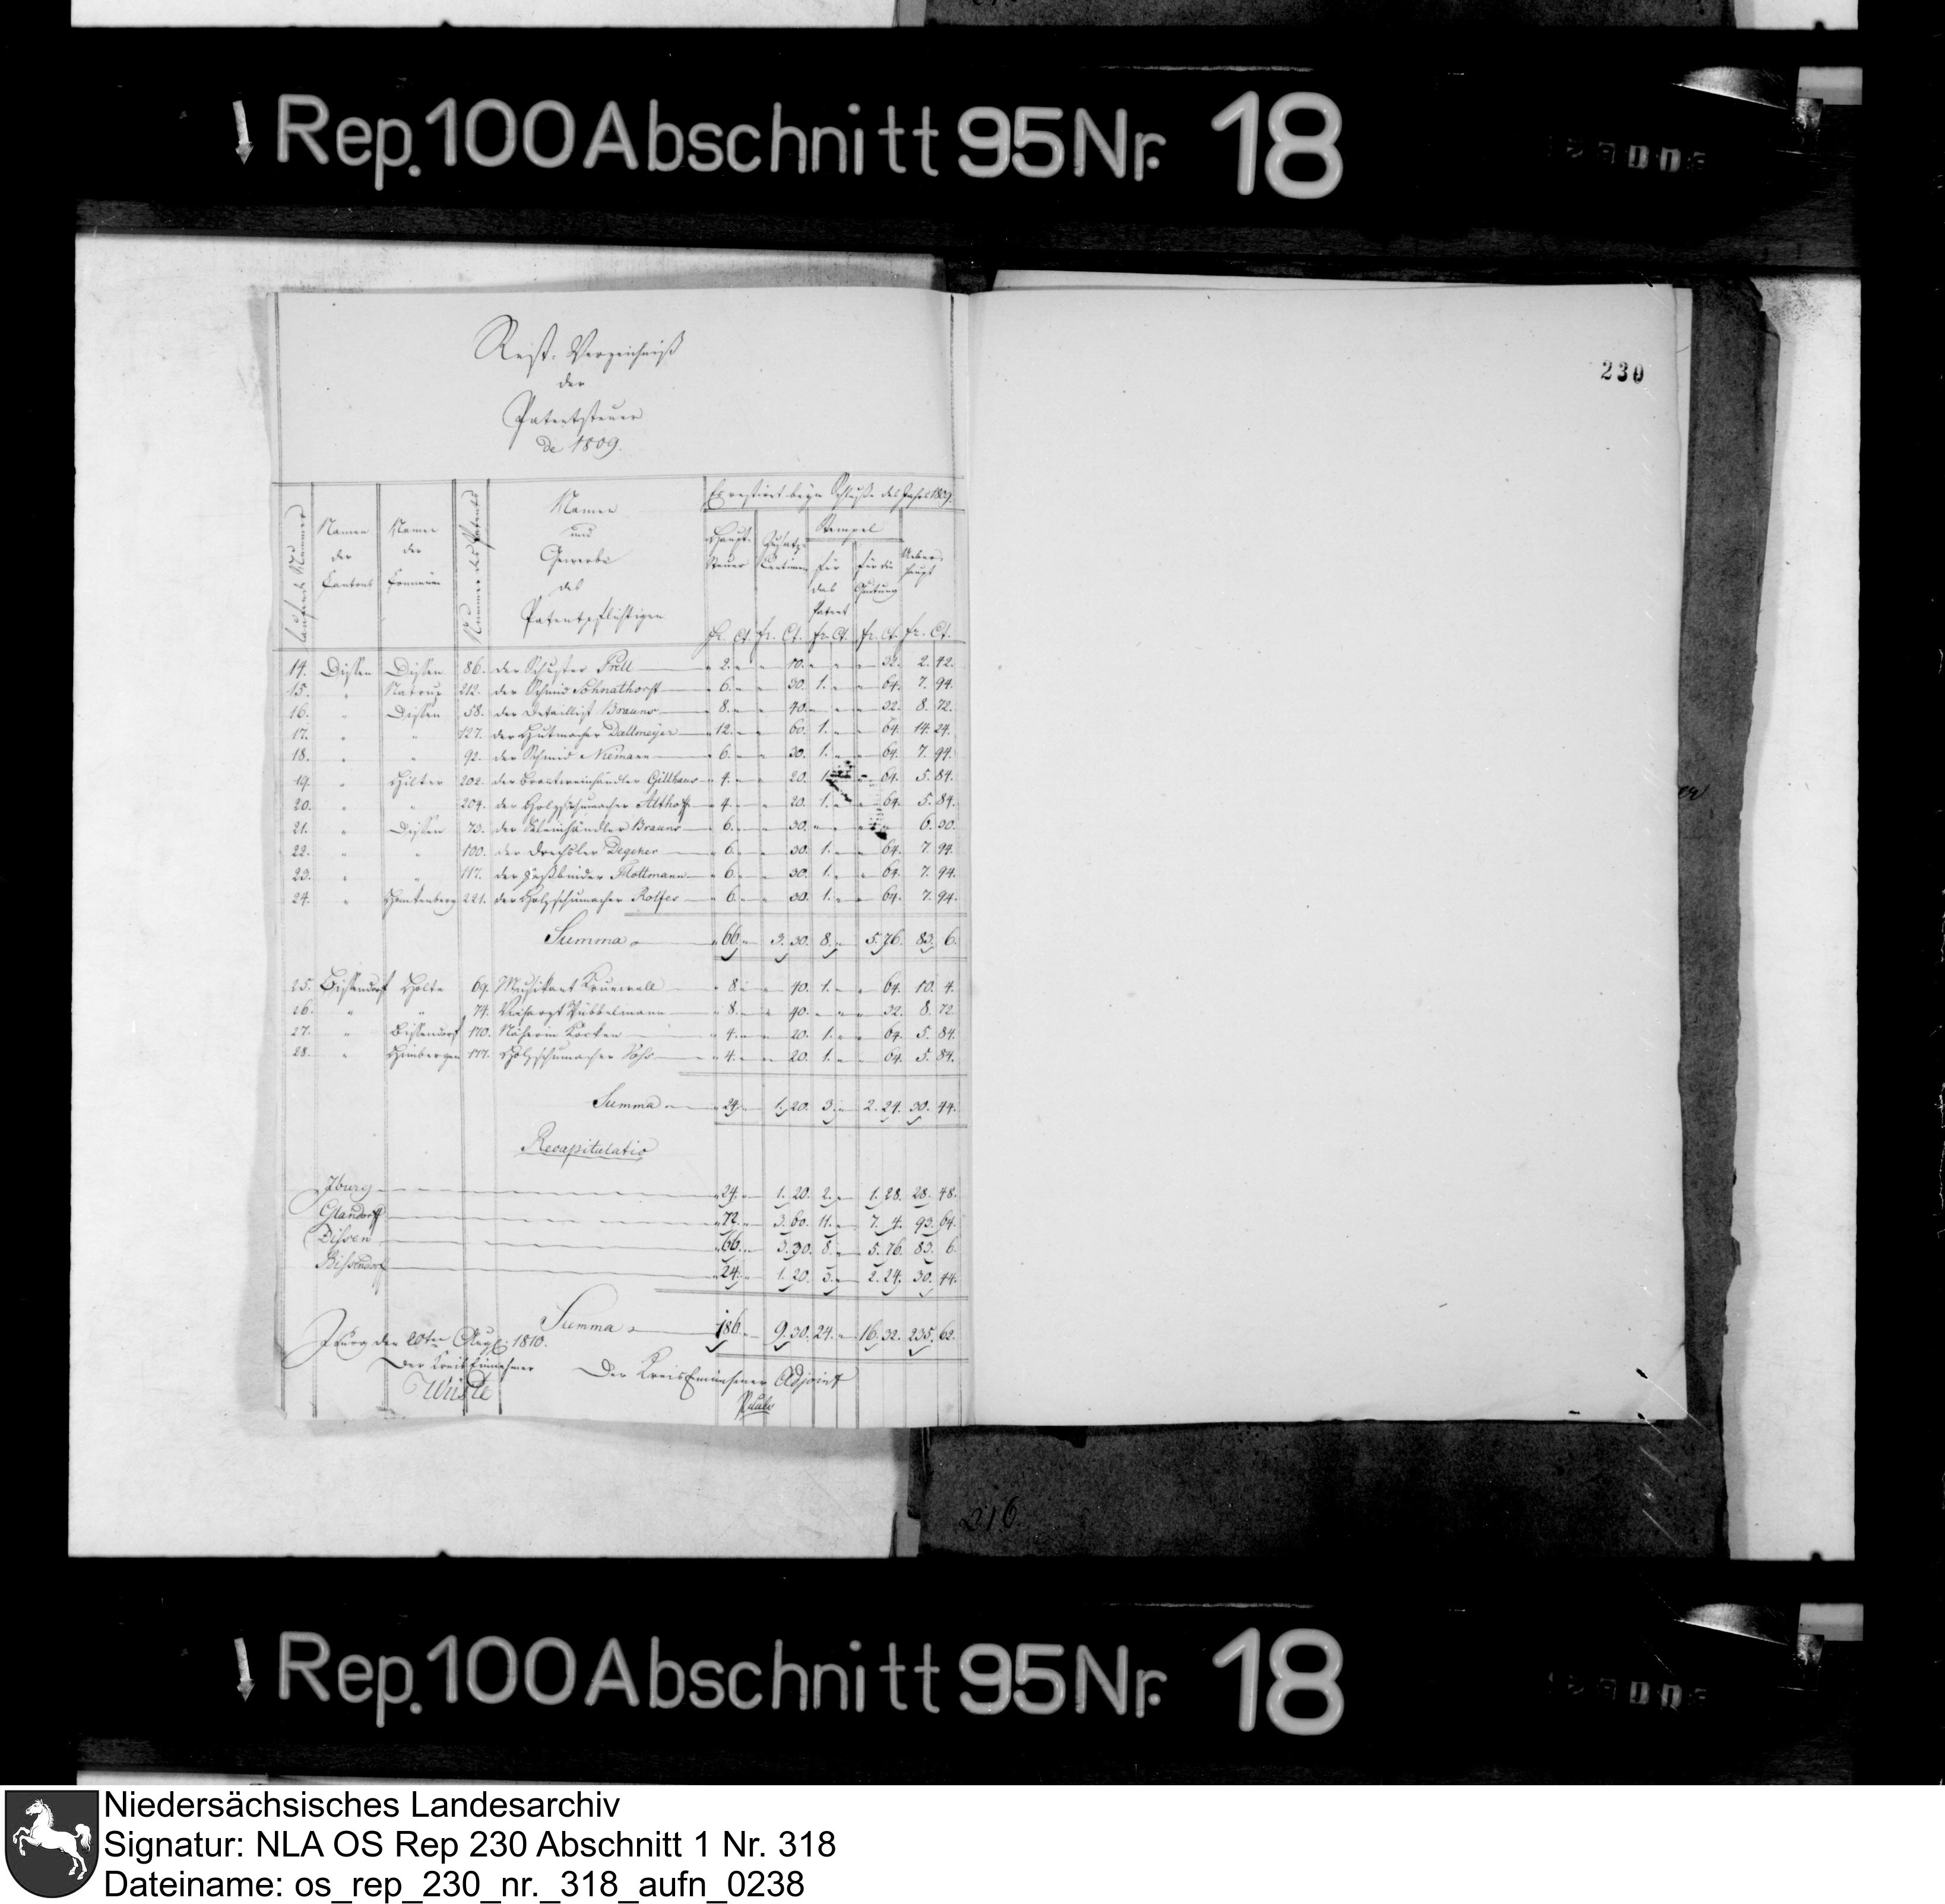 Rep. 100 Abschnitt 95 Nr. 18
230
Rest-Verzeichniß
der
Patentsteuer
de 1809.
Es restirt beym Schluße des Jahrs 1809.
laufende Nummer
Namen der Cantons
Namen der Commune
Nummer des Patents
Namen und Gewerbe des Patentpflichtigen
Haupt-Steuer
Zusatz-Centimen
Stempel
für das Patent
für die Quitung
Ueberhaupt
fr. Ct. fr. Ct. fr. Ct. fr. Ct. fr. Ct.
14. Dissen Dissen 86. der Schuster Prell " 2. " " 10. " " " 32. 2. 42.
15. " Natrup 212. der Schmid Schnathorst " 6. " " 30. 1. " " 64. 7. 94.
16. " Dissen 58. der Detaillist Brauns " 8. " " 40. " " " 32. 8. 72.
17. " " 127. der Hutmacher Dallmeyer " 12. " " 60. 1. " " 64. 14. 24.
18. " " 92. der Schmid Niemann " 6. " " 30. 1. " " 64. 7. 94.
19. " Hilter 202. der Gilthaus " 4. " " 20. 1. " 64. 5. 84.
20. " " 204. der Holzschumacher Althoff " 4. " " 20. 1. " " 64. 5. 84.
21. " Dissen 73. der Brauns " 6. " " 30. " " " " 6. 30.
22. " " 100. der Drechsler Degener " 6. " " 30. 1. " " 64. 7. 94.
23. " " 117. der Faßbinder Flottmann " 6. " " 30. 1. " " 64. 7. 94.
24. " 221. der Holzschumacher Rolfes " 6. " " 30. 1. " " 64. 7. 94.
Summa " 66. " 3. 30. 8. " 5. 76. 83. 6.
25. Bissendorf Holte 69. Musikant " 8. " " 40. 1. " " 64. 10. 4.
26. " " 74. " 8. " " 40. " " " 32. 8. 72.
27. " Bissendorf 170. Näherin " 4. " " 20. 1. " " 64. 5. 84.
28. " Himbergen 177. Holzschumacher " 4. " " 20. 1. " " 64. 5. 84.
Summa " 24. " 1. 20. 3. " 2. 24. 30. 44.
Recapitulatio
Iburg " 24. " 1. 20. 2. " 1. 28. 28. 48.
Glandorff " 72. " 3. 60. 11. " 7. 4. 93. 64.
Dissen " 66. " 3. 30. 8. " 5. 76. 83. 6.
Bissendorf " 24. " 1. 20. 3. " 2. 24. 30. 44.
Summa " 186. " 9. 30. 24. " 16. 32. 235. 62.
Iburg den 20ten Aug. 1810.
Der Kreis Einnehmer
Wüste
Der Kreis Einnehmer Adjoint
216.
Rep. 100 Abschnitt 95 Nr. 18
Niedersächsisches Landesarchiv
Signatur: NLA OS Rep 230 Abschnitt 1 Nr. 318
Dateiname: os_rep_230_nr._318_aufn_0238